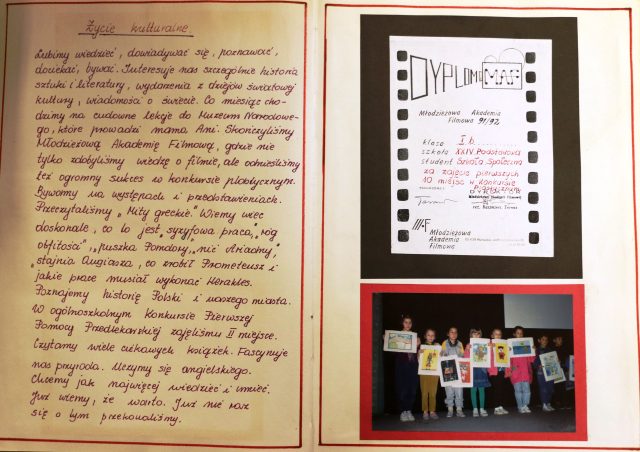 Życie kulturalne
Lubimy wiedzieć, dowiadywać się, poznawać,
dociekać, bywać. Interesuje nas szczególnie historia
sztuki i literatury, wydarzenia z dziejów światowej
kultury, wiadomości o świecie. Co miesiąc cho-
dzimy na cudowne lekcje do Muzeum Narodowe-
go, które prowadzi mama Ani. Skończyliśmy
Młodzieżową Akademię Filmową, gdzie nie
tylko zdobyliśmy wiedzę o filmie, ale odnieśliśmy
też ogromny sukces w konkursie plastycznym.
Bywamy na występach i przedstawieniach.
Przeczytaliśmy „Mity greckie". Wiemy więc
doskonale, co to jest „syzyfowa praca", „róg
obfitości", „puszka Pandory", „nić Ariadny",
„stajnia Augiasza", co zrobił Prometeusz i
jakie prace musiał wykonać Herakles.
Poznajemy historię Polski i naszego miasta.
W ogólnoszkolnym Konkursie Pierwszej
Pomocy Przedlekarskiej zajęliśmy II miejsce.
Czytamy wiele ciekawych książek. Fascynuje
nas przyroda. Uczymy się angielskiego.
Chcemy jak najwięcej wiedzieć i umieć.
Już wiemy, że warto. Już nie raz
się o tym przekonaliśmy.
DYPLOM MAF
Młodzieżowa Akademia
Filmowa 91/92
klasa I b
szkoła XXIV Podstawowa
student Brać Społeczna
za zajęcie pierwszych
10 miejsc w konkursie
plastycznym
DYREKTOR
Młodzieżowej Akademii Filmowej
MAF
Młodzieżowa
Akademia
Filmowa